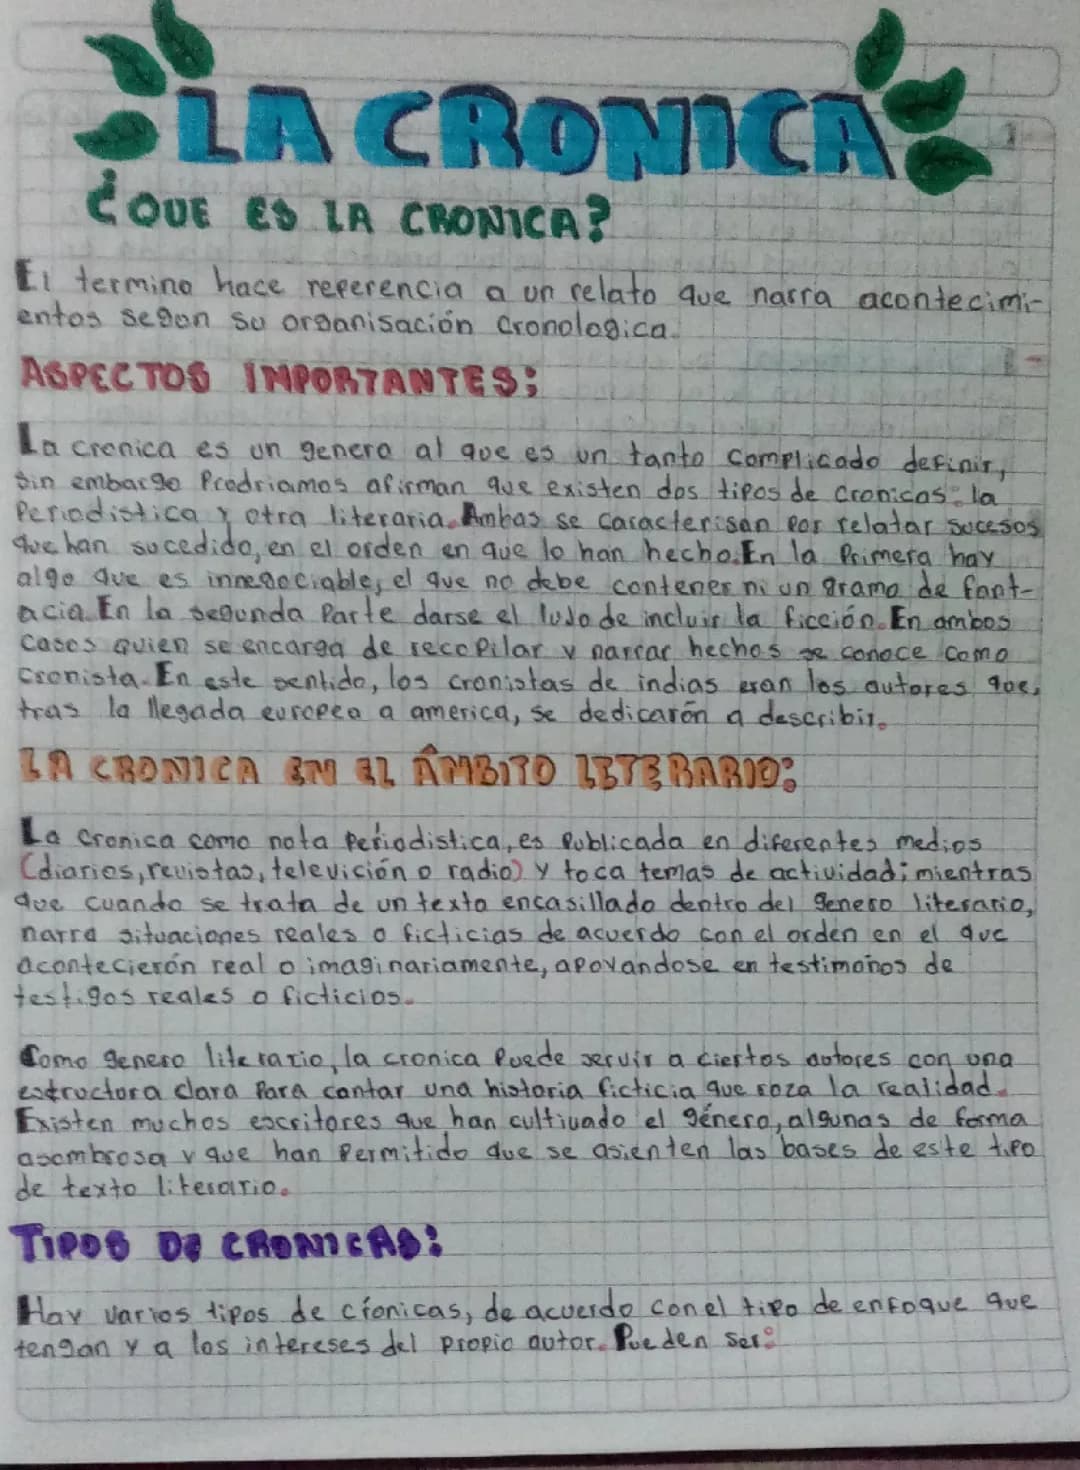 LA CRONICA
¿QUE ES LA CRONICA?
El termino hace referencia a un relato que narra acontecimi-
entos segun su organisación cronologica.
ASPECTOS IMPORTANTES:
La cronica es un genero al que es un tanto complicado definir,
sin embargo Prodriamos afirman que existen dos tipos de cronicas: la
Periodistica y otra literaria. Ambas se caracterisan por relatar sucesos
que han sucedido, en el orden en que lo han hecho. En la Primera hay
algo que es innegociable, el que no debe contener ni un gramo de fant-
acia. En la segunda Parte darse el lujo de incluir la ficción. En ambos
casos quien se encarga de recopilar y narrar hechos se conoce como
cronista. En este sentido, los cronistas de indias eran los autores que,
tras la llegada europea a america, se dedicarón a describir.
LA CRONICA EN EL ÂMBITO LITERARIO:
La cronica como nota Periodistica, es Publicada en diferentes medios
(diarios, revistas, televición o radio) y toca temas de actividad; mientras
que cuando se trata de un texto encasillado dentro del genero literario,
narra situaciones reales o ficticias de acuerdo con el orden en el que
acontecierón real o imaginariamente, apoyandose en testimonos de
testigos reales o ficticios.
Como genero literario, la cronica Puede servir a ciertos autores con una
estructura clara Para contar una historia ficticia que roza la realidad.
Existen muchos escritores que han cultivado el género, algunas de forma
asombrosa y que han Permitido que se asienten las bases de este tipo
de texto literario.
TIPOS DE CRONICAS:
Hay varios tipos de cronicas, de acuerdo con el tipo de enfoque que
tengan y a los intereses del propio autor. Pueden ser: